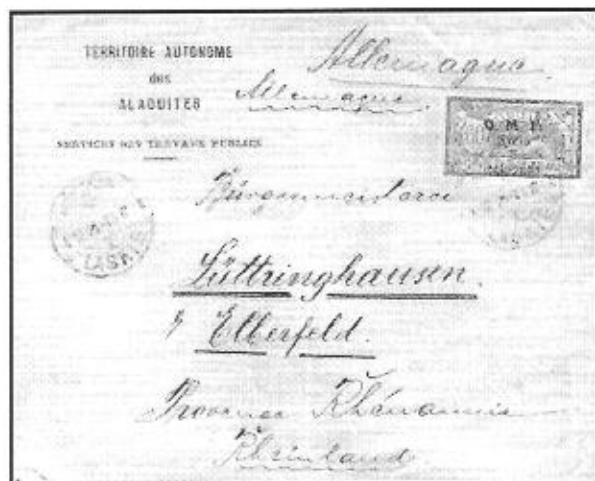 TERRITOIRE AUTONOME
des
ALAOUITES
SERVICES DES TRAVAUX PUBLICS
Allemagne
Allemagne
O. M. F.
Syrie
Bürgermeisterei
Lüttringhausen.
Elberfeld.
Province Rhénanie
Rheinland.